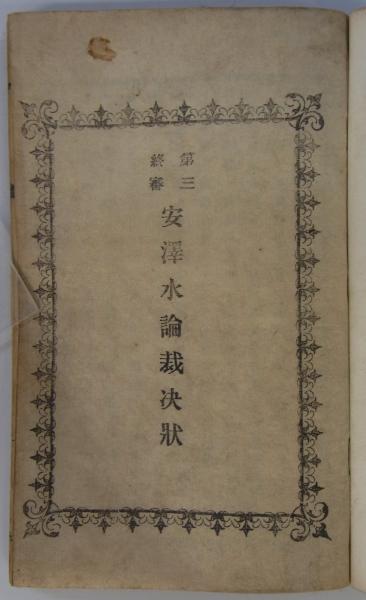 第三
終審
安澤水論裁决狀